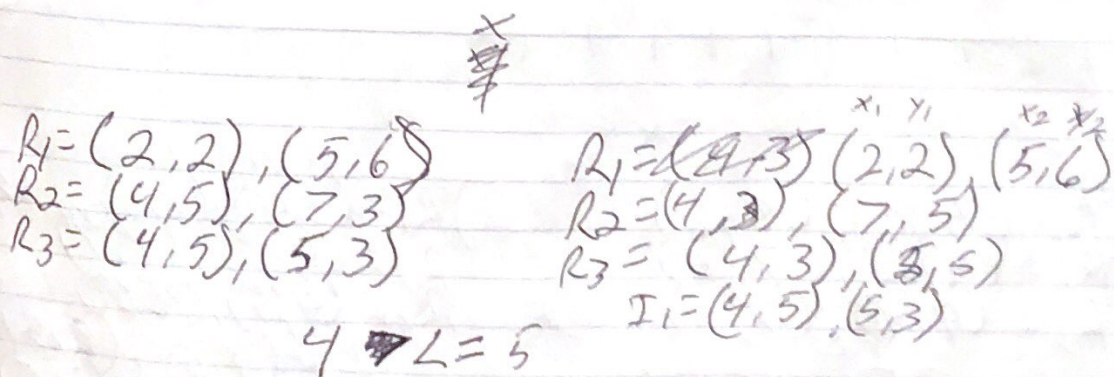 X
R1=(2,2),(5,6)
R2=(4,5),(7,3)
R3=(4,5),(5,3)
x1 y1 x2 y2
R1=(2,2),(5,6)
R2=(4,3),(7,5)
R3=(4,3),(5,5)
I1=(4,5),(5,3)
4 L=5